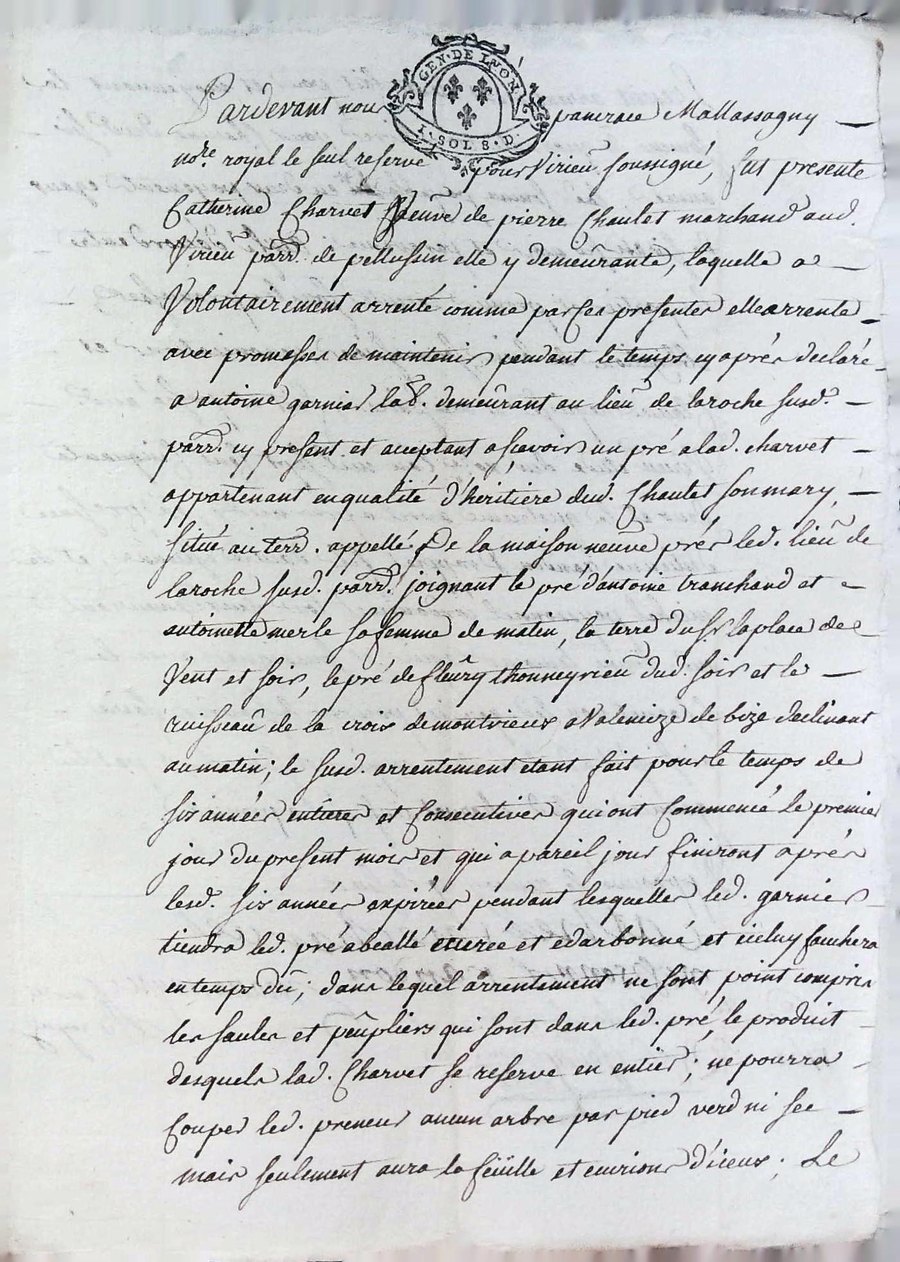 GEN. DE LYON.
1. SOL 8. D.
Pardevant nou pancrace Mallassagny
no.re royal le seul reservé pour Virieu soussigné, fut presente
Catherine Charvet Veuve de pierre Chaulet marchand aud.
Virieu parr. de pellussin elle y demeurante, laquelle a
Volontairement arrenté comme par ses presentes elle arrente
avec promesses de maintenir pendant le temps cy après declaré
a antoine garnier lab.r demeurant au lieu de laroche susd.
parr. cy present et aceptant ascavoir un pré a lad. charvet
appartenant en qualité d'héritiere dud. Chaulet son mary,
situé au terr. appellé de la maison neuve près led. lieu de
laroche susd. parr. joignant le pré d'antoine tranchand et
antoinette merle sa femme de matin, la terre du sr laplace de
Vent et soir, le pré de fleury thonneyrieu dud. soir et le
ruisseau de la crois de montvieux a Valencize de bize declinant
au matin; le susd. arrentement etant fait pour le temps de
six années entieres et Consecutives qui ont Commencé le premier
jour du present mois et qui a pareil jour finiront après
lesd. six années expirées pendant lesquelles led. garnier
tiendra led. pré abeallé eteree et edarbonné et iceluy fauchera
en temps dû; dans lequel arrentement ne sont point compris
les saules et peupliers qui sont dans led. pré, le produit
desquels lad. Charvet se reserve en entier; ne pourra
Couper led. preneur aucun arbre par pied verd ni sec
mais seulement aura la feüille et d'iceux; Le